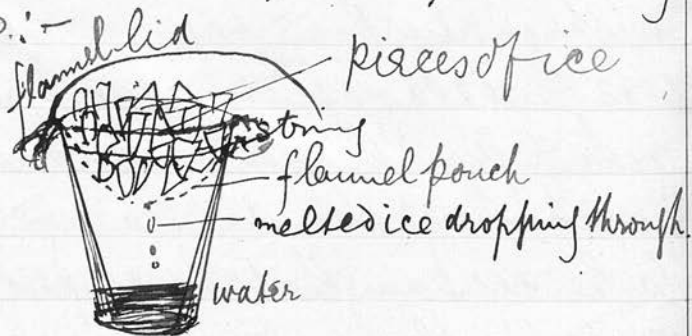 flannel lid
pieces of ice
string
flannel pouch
melted ice dropping through.
water